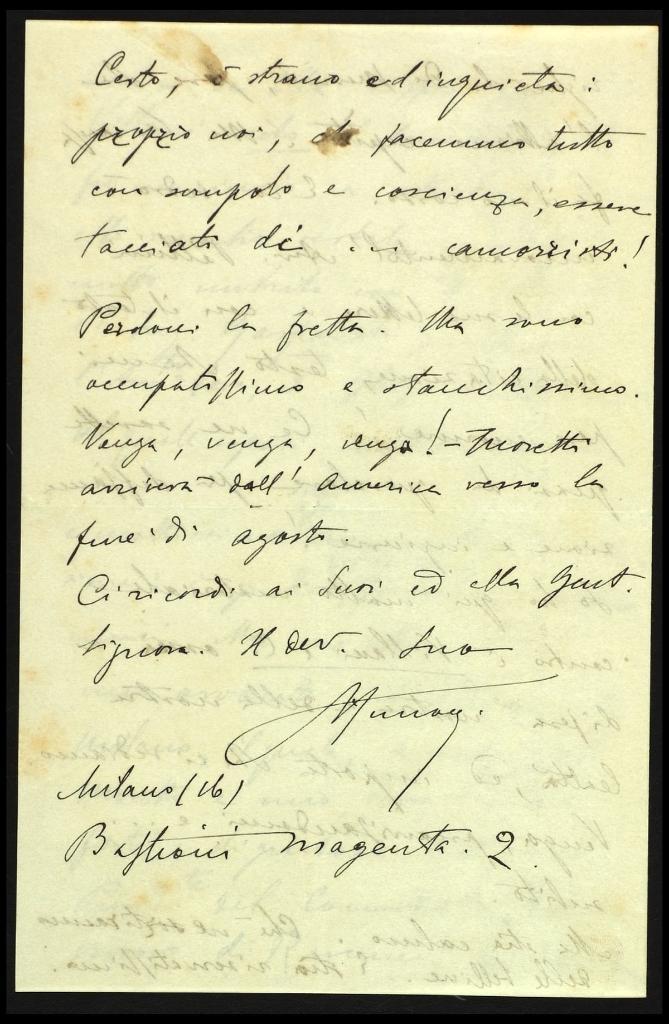 Certo, è strano ed inquieta:
proprio noi, che facemmo tutto
con scrupolo e coscienza, essere
tacciati di ... camorristi!
Perdoni la fretta. Ma sono
occupatissimo e stanchissimo.
Venga, venga, venga! - Moretti
arriverà dall'America verso la
fine di agosto.
Ci ricordi ai Suoi ed alla Gent.
Signora. Il dev. Suo
Milano (16)
Bastioni Magenta. 2